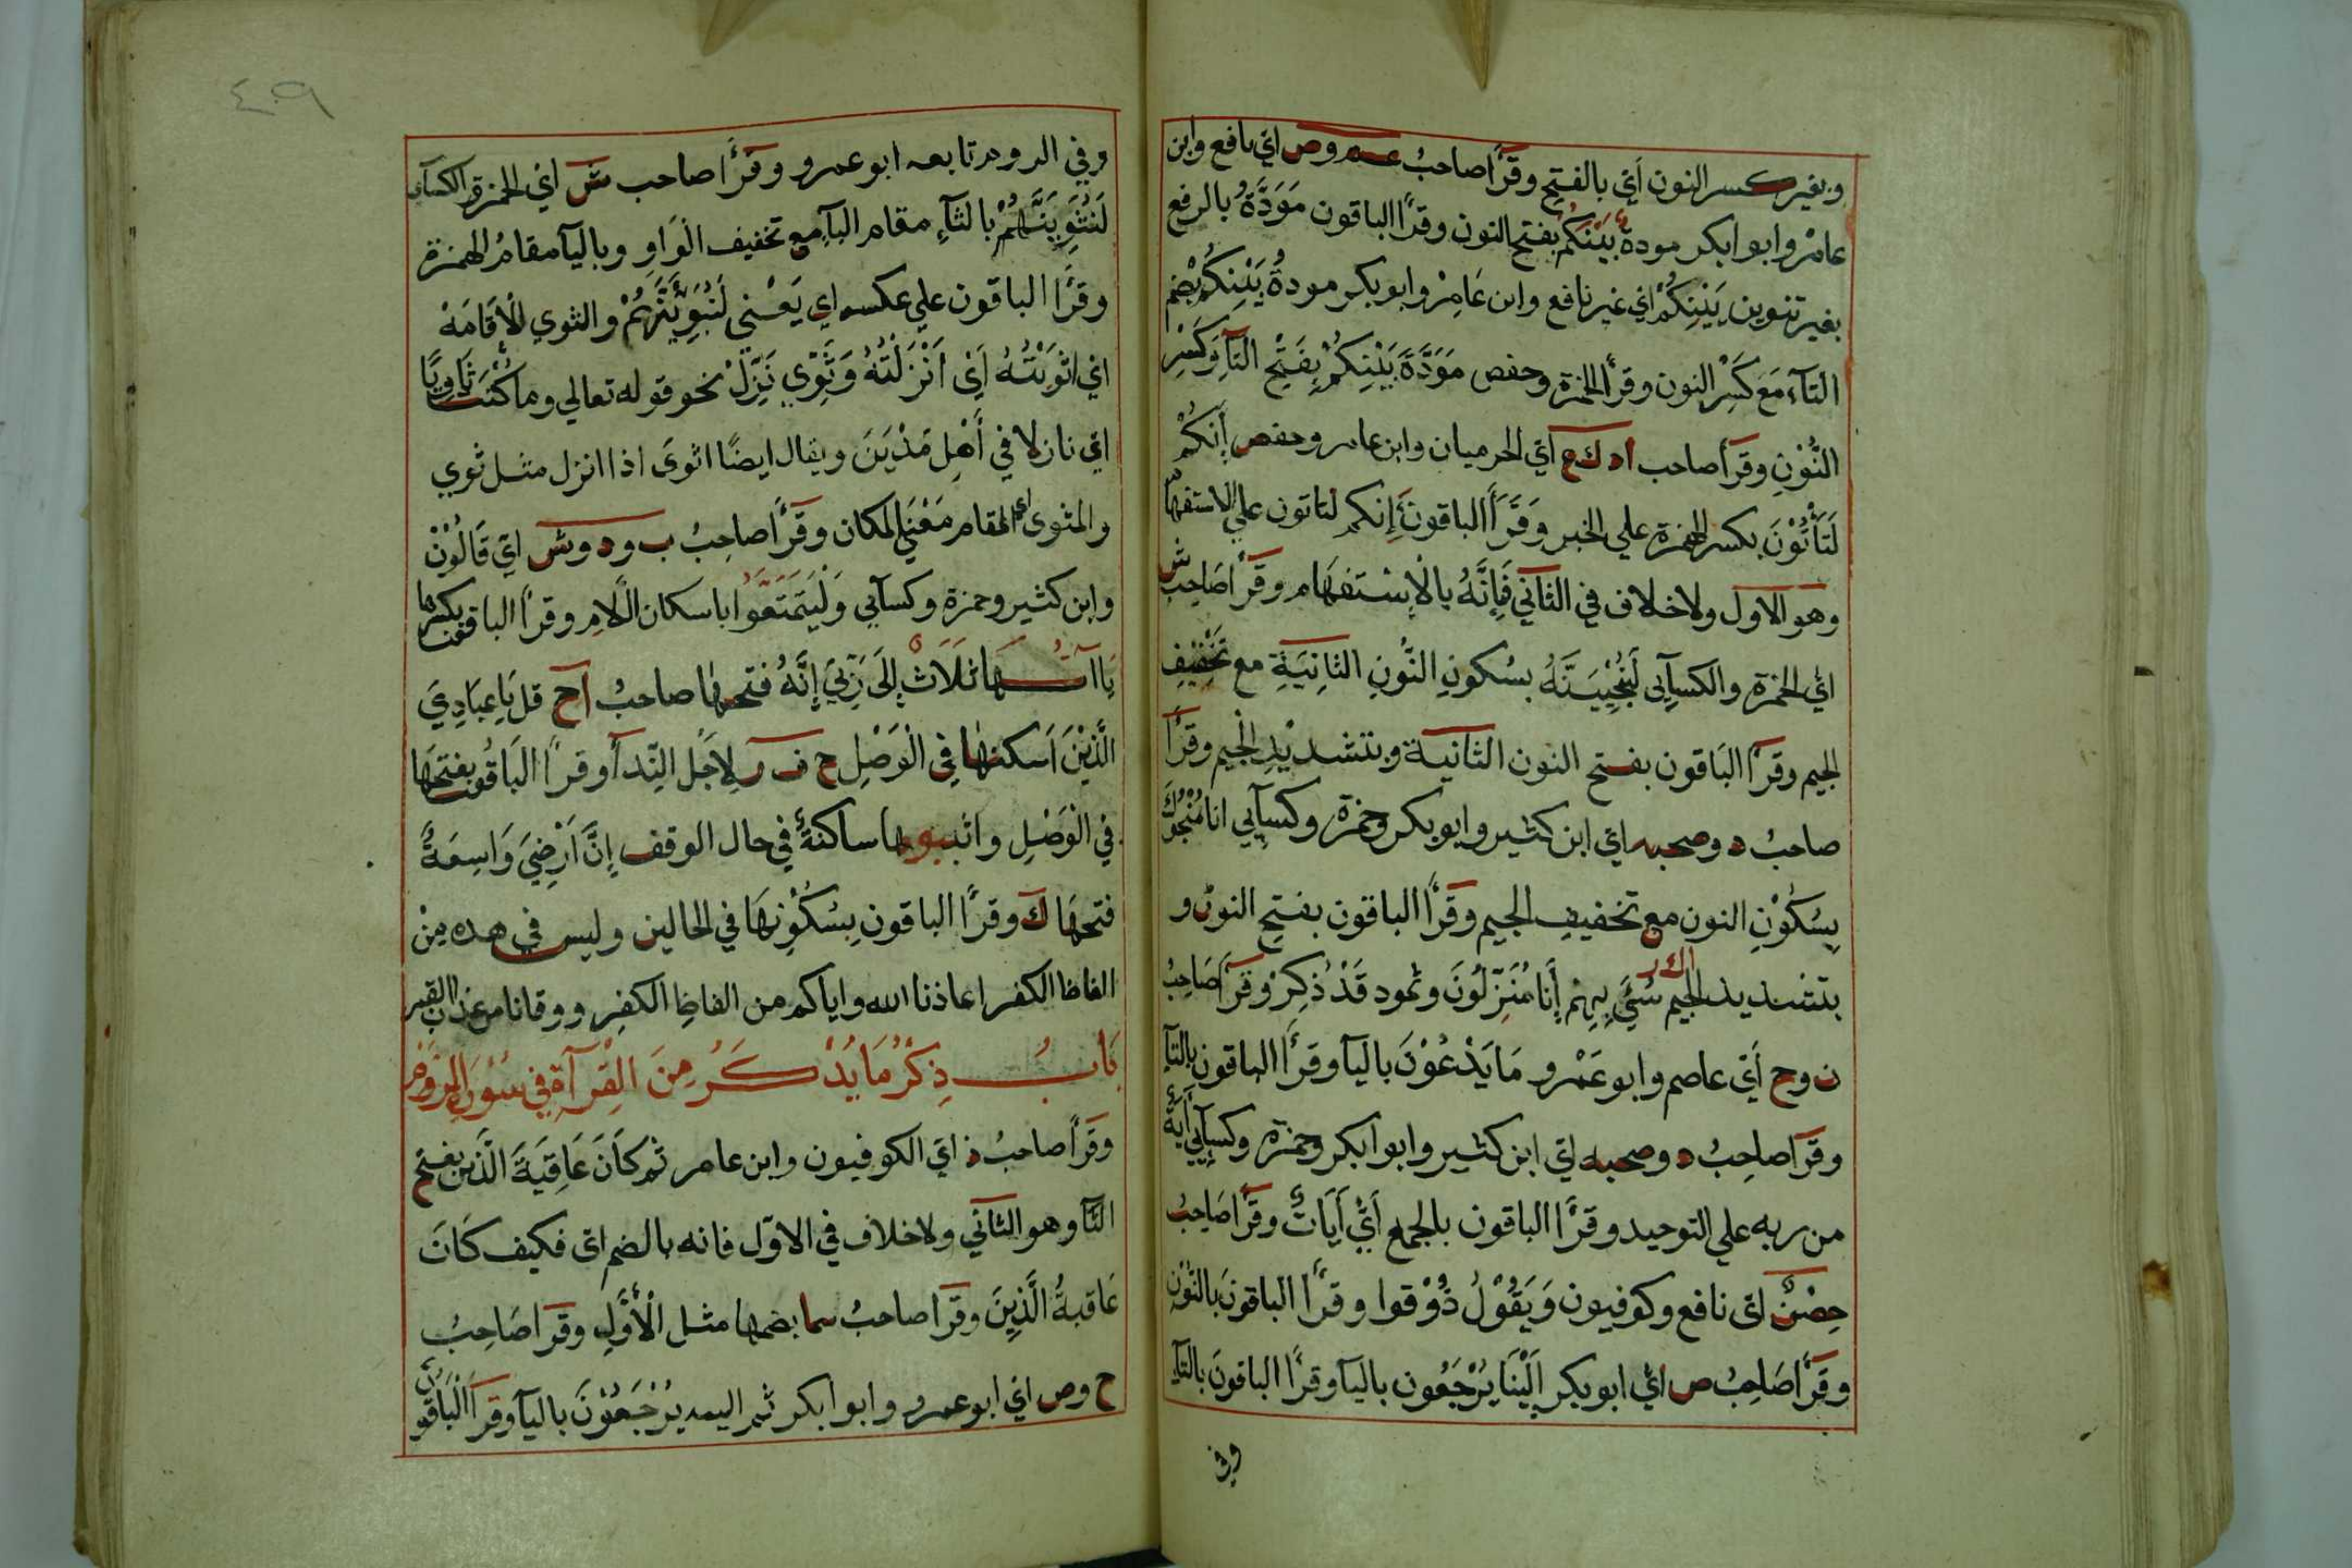 وبغير كسر النون اَي بالفتح وقرأ صاحبُ عم وص اي نافع وابن
عامر وابو ابكر مودةً بَيْنَكُمْ بفتح النون وقرأ الباقون مَوَدَّةُ بالرفع
بغير تنوين بَيْنِكُمْ اي غير نافع وابن عَامِرْ وابو بكر مودةُ بَيْنِكُمْ بضم
التآء مَعَ كَسْرِ النون وقرأ الحمزة وحفص مَوَدَّةَ بَيْنِكُمْ بِفَتْحِ التآ وَكَسْرِ
النُّوْنِ وقرأ صاحب اد ك ع اَي الحرميان وابن عامر وحفص إنكُمْ
لَتَأْتُوْنَ بكسر الهمزة علي الخبر وَقَرَأَ الباقونَ أَإِنكم لتاتون علي الاستفهام
وهو الاول ولا خلاف في الثاني فَاِنَّهُ بالْاِسْتفهَام وقرأ صَاحِبُ ش
اي الحمزة والكسآىِ لَنُنْجِيَنَّهُ بسُكونِ النُّونِ الثانِيَةِ مع تَخْفِيْفِ
الجيم وقرأ البَاقون بفتح النون الثانية وبتشديْدِ الْجيم وقرأ
صاحبُ د وصحبه اي ابن كثير وابو بكر وحمزة وكسآيي انا مُنْجُوْكَ
بِسُكُوْنِ النون مع تخفيفِ الجيم وقرأ الباقون بفتح النون و
بتشديد الجيم سُئَ بِهِمْ إنا مُنَزِّلُونَ وثمود قَدْ ذُكِرْ وقرأ صَاحِبُ
ا ك ر
ن وح اَي عاصم وابو عَمْرو مَا يَدْعُوْنَ باليآ وقرأ الباقون بالتآ
وقرأ صاحِبُ د وصحبه اي ابن كثير وابو ابكر وحمزة وكسآيي اَيَةٌ
من ربه علي التوحيد وقرأ الباقون بالجمع اَيْ اَيَاتٌ وقرأ صَاحِبُ
حِصْنٌ اي نافع وكوفيون وَيَقُوْلُ ذُوْقوا وقرأ الباقونَ بالنُّوْنِ
وقرأ صَاحِبُ ص اي ابو بكر اِلَيْنَا يُرْجَعُون باليآ وقرأ الباقونَ بالتآ
وفي
٤٠٩
وفي الروم تابعه ابو عمرو وقرأ صاحب ش اي الحمزة والكسآى
لَنُثْوِيَنَّهُمْ بالثآءِ مقام البآ مع تخفيف الْوَاوِ وباليآ مقامُ الهمزة
وقرأ الباقون علي عكسه اي يَعْني لَنُبَوِّئَنَّهُمْ والثوي الْاِقَامَةْ
اي اثوَيْتُهُ اَيْ اَنْزَلْتُهُ وَثَوِي نَزِّلْ نحو قوله تعالي وما كُنْتَ ثَاوِيًا
اي نازلا في اَهْلِ مَدْيَنَ ويقال ايضًا اثوىَ اذا انزل مثل ثوي
والمثوى اي المقام مَعْنَي المكان وقرأ صاحِبُ ب ود وش اي قَالُوْنْ
وابن كثير وحمزة وكسآيي وَلْيَتَمَتَّعُوْا باسكان الْلَامِ وقرأ الباقون بكسرها
يَاآتُهَا ثلَاثٌ إلَى رَبِّيَ إِنَّهُ فتحها صاحبُ اح قل يَاعِبَادِيَ
الَّذِيْنَ اَسكنها في الْوَصْلِ ح ف ر لِاَجْلِ النِّدآ وقرأ البَاقُون بفتحهَا
في الْوَصْلِ واثبتوها ساكنةً في حال الوقف إنَّ اَرْضِيَ وَاسِعَةٌ
فتحهَا ك وقرأ الباقون بِسُكُوْنِهَا في الحالين وليس في هده مِنْ
الفاظ الكفر اعاذنا الله واياكم من الفاظِ الكفِر ووقانا من عذاب القبر
بَابُ ذِكْرُ مَا يُذْكَرُ مِنَ الْقِرآةِ في سُوْرَةِ الرُوْم
وقرأ صاحبُ ذ اي الكوفيون وابن عامر ثم كَانَ عَاقِبَةَ الَّذين بفتح
التآ وهو الثاني ولا خلاف في الاوّل فانه بالضم اى فكيف كَانَ
عَاقبةُ الَّذِيْنَ وقرأ صاحبُ سما بضمها مثل الْاَوَّلِ وقرأ صَاحِبُ
ح وص اي ابو عمرو وابو ابكر ثم اليه يُرْجَعُوْنَ باليآ وقرأ الْبَاقُوْنَ